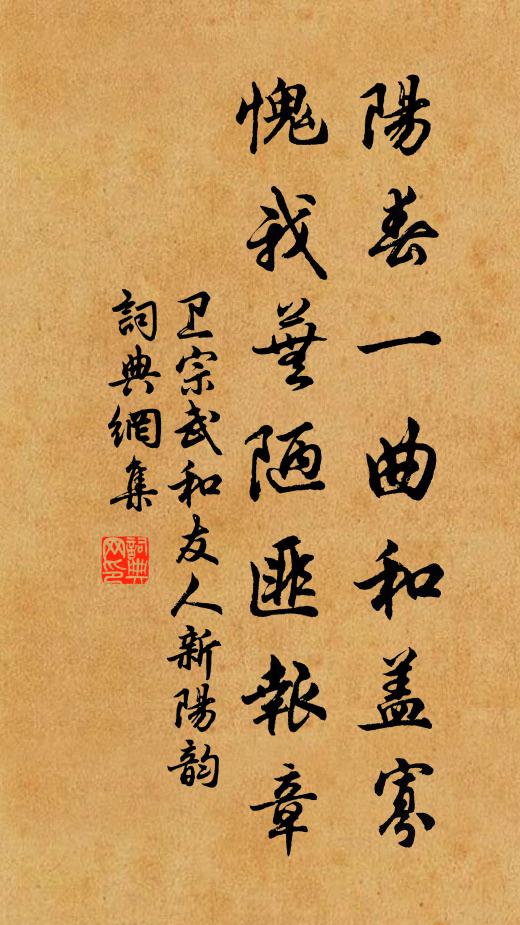 陽春一曲和盖寡
愧我蕪陋匪報章
卫宗武和友人新陽韵
詞典網集
詞典网印